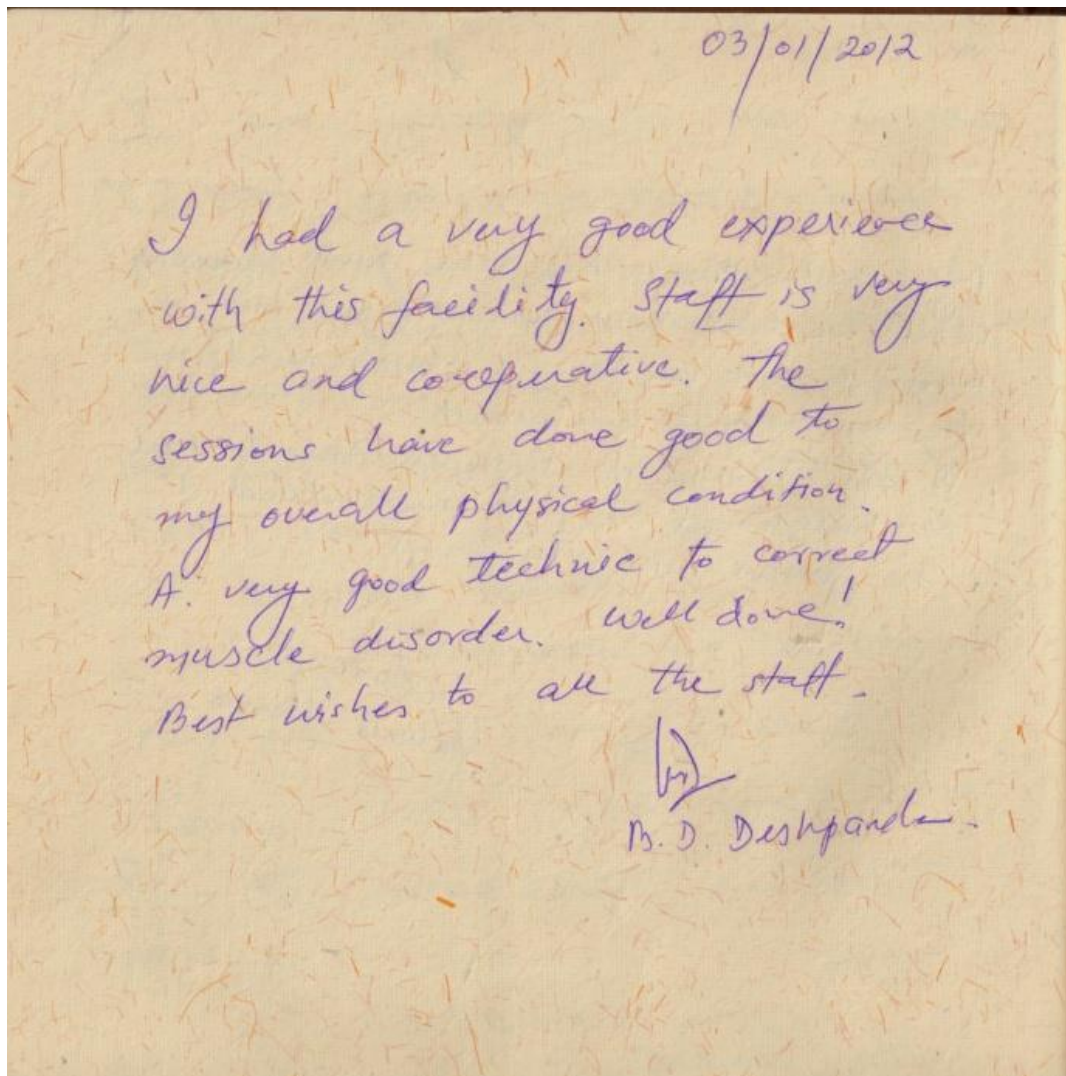 03/01/2012
I had a very good experience
with this facility. Staff is very
nice and co-operative. The
sessions have done good to
my overall physical condition.
A very good technic to correct
muscle disorder. Well done!
Best wishes to all the staff.
B. D. Deshpande.